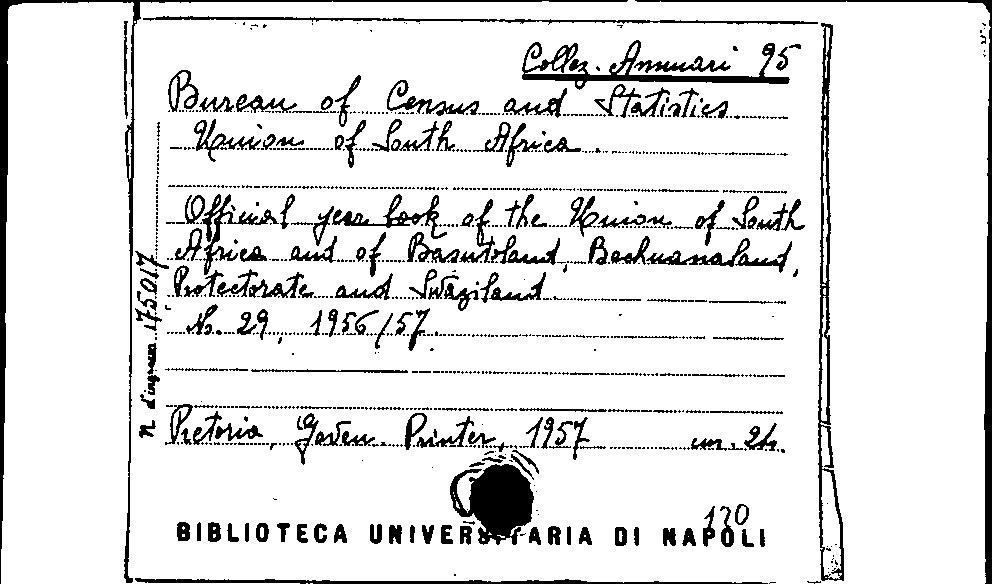 Collez. Annuari 95
Bureau of Census and Statistics.
Union of South Africa.
Official year book of the Union of South
Africa and of Basutoland, Bechuanaland,
Protectorate and Swaziland.
N. 29, 1956/57.
Pretoria, Goven. Printer, 1957 cm. 24.
N d'ingresso 175017
120
BIBLIOTECA UNIVERSITARIA DI NAPOLI